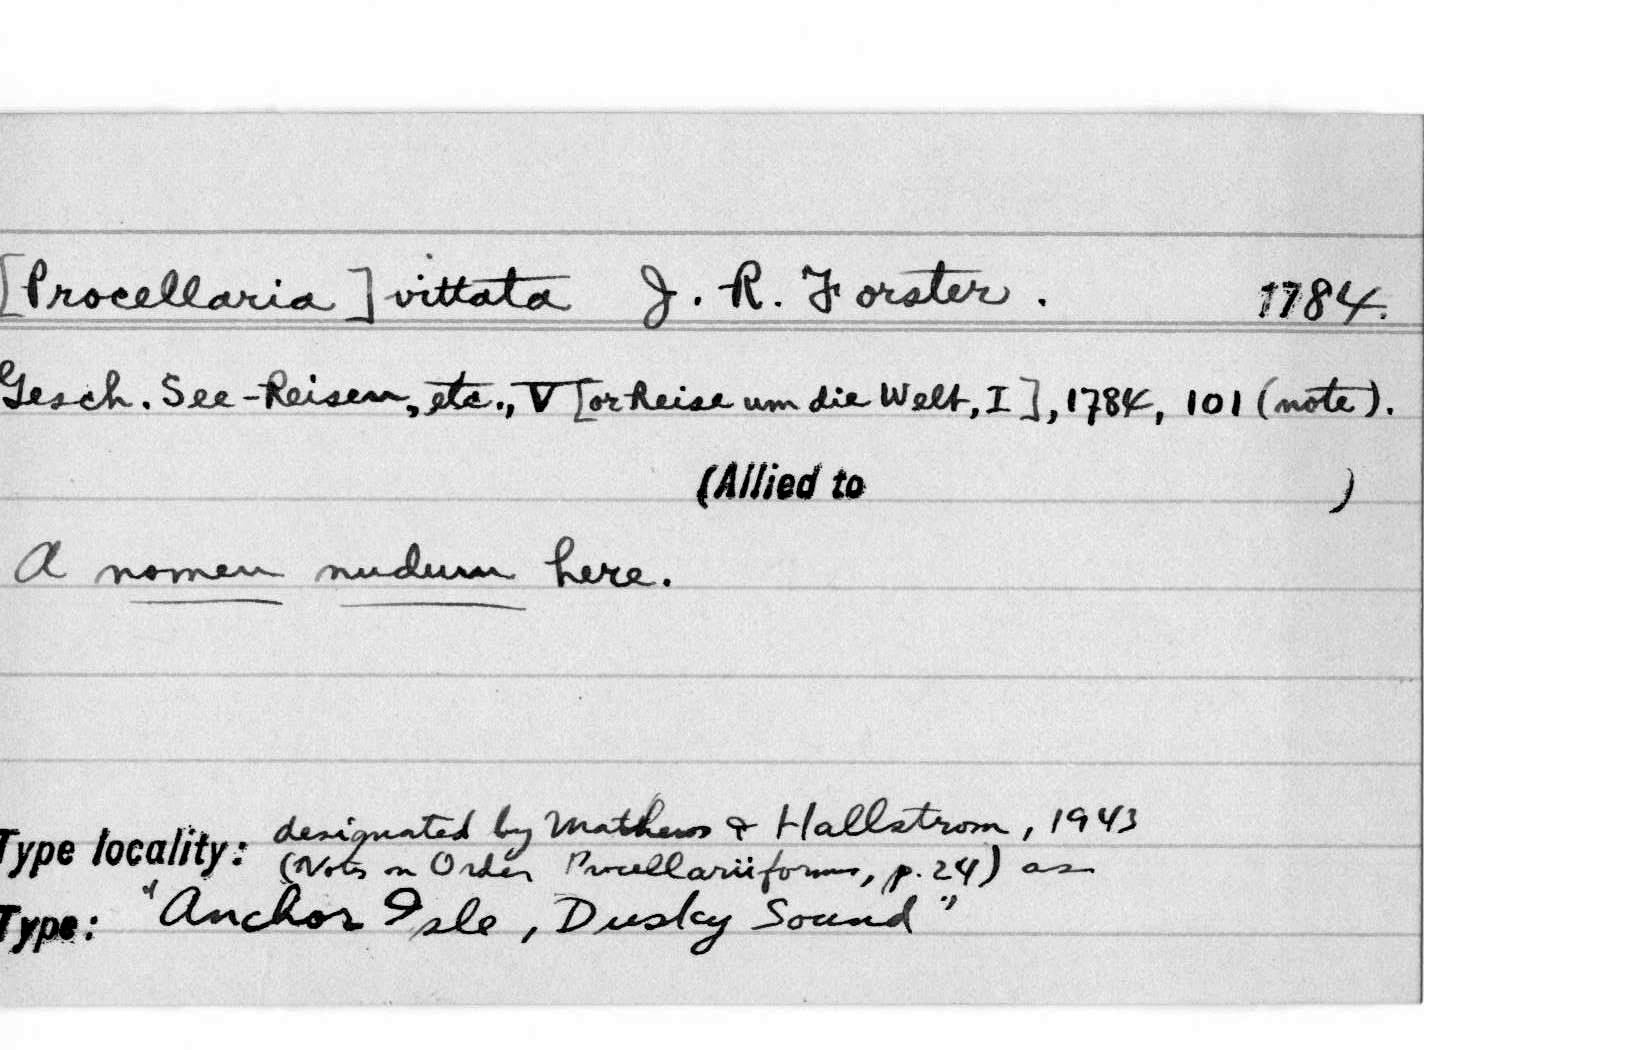 [Procellaria] vittata J. R. Forster. 1784.
Gesch. See-Reisen, etc., V [or Reise um die Welt, I], 1784, 101 (note).
(Allied to )
A nomen nudum here.
Type locality: designated by Mathews & Hallstrom, 1943
(Notes on Order Procellariiformes, p. 24) as
Type: "Anchor Isle, Dusky Sound"